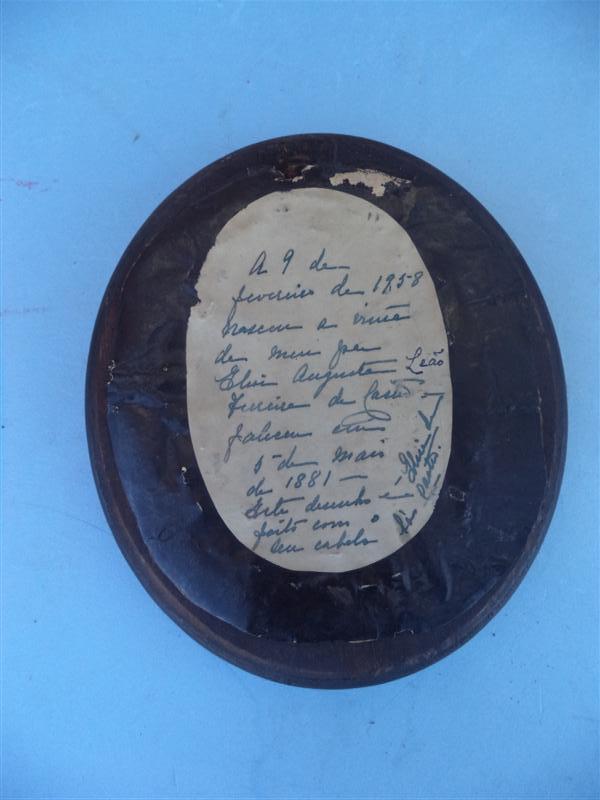 A 9 de
fevereiro de 1958
nasceu a irmã
de meu pae
Elvira Augusta Leão
Ferreira de Castro
faleceu em
5 de Maio
de 1881 —
Este desenho é
feito com o
seu cabelo